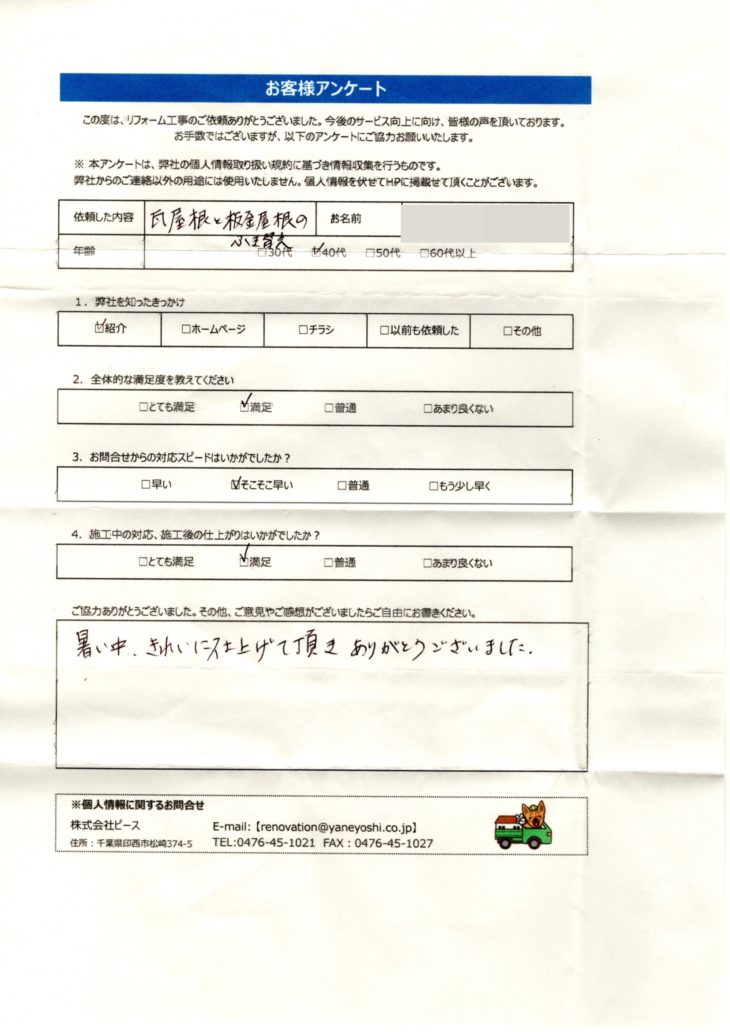 お客様アンケート
この度は、リフォーム工事のご依頼ありがとうございました。今後のサービス向上に向け、皆様の声を頂いております。
お手数ではございますが、以下のアンケートにご協力お願いいたします。
※ 本アンケートは、弊社の個人情報取り扱い規約に基づき情報収集を行うものです。
弊社からのご連絡以外の用途には使用いたしません。個人情報を伏せてHPに掲載せて頂くことがございます。
依頼した内容 瓦屋根と板金屋根の お名前
ふき替え
年齢 □30代 ☑40代 □50代 □60代以上
1. 弊社を知ったきっかけ
☑紹介 □ホームページ □チラシ □以前も依頼した □その他
2. 全体的な満足度を教えてください
□とても満足 ☑満足 □普通 □あまり良くない
3. お問合せからの対応スピードはいかがでしたか?
□早い ☑そこそこ早い □普通 □もう少し早く
4. 施工中の対応、施工後の仕上がりはいかがでしたか?
□とても満足 ☑満足 □普通 □あまり良くない
ご協力ありがとうございました。その他、ご意見やご感想がございましたらご自由にお書きください。
暑い中、きれいに仕上げて頂き ありがとうございました.
※個人情報に関するお問合せ
株式会社ピース E-mail:【renovation@yaneyoshi.co.jp】
住所:千葉県印西市松崎374-5 TEL:0476-45-1021 FAX:0476-45-1027